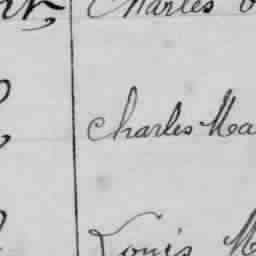 Charles
Charles Ma
Louis M